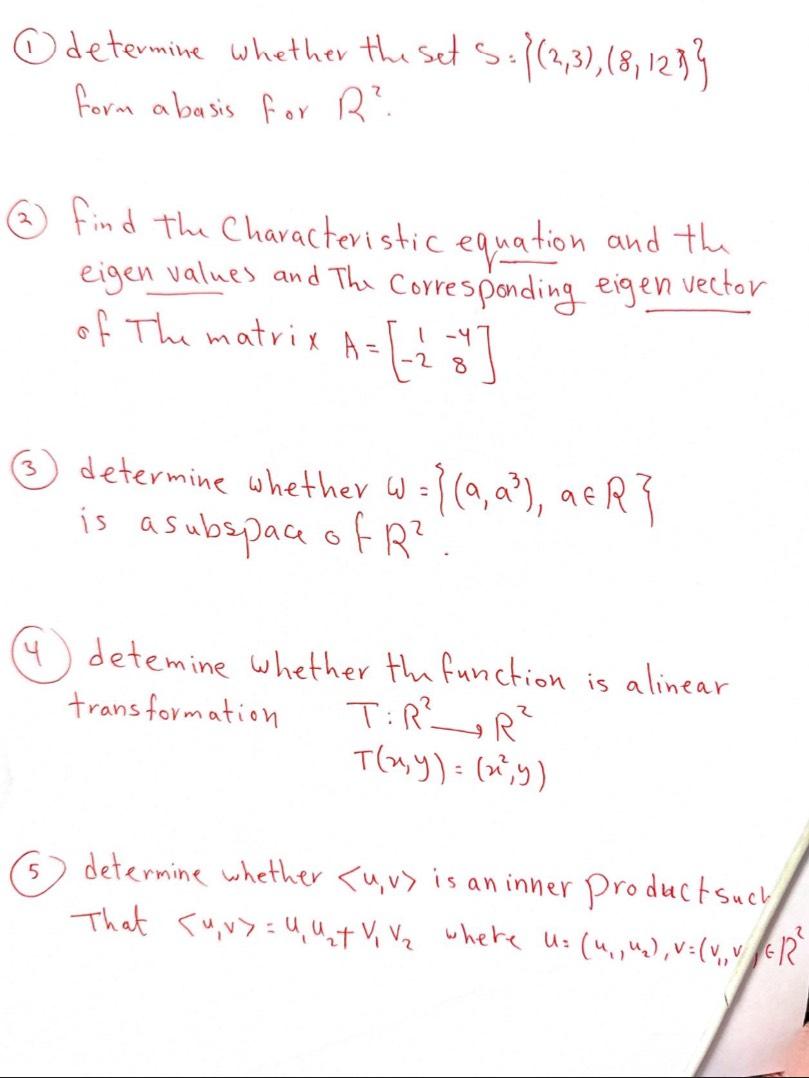 ① determine whether the set S = {(2,3), (8,12)}
form a basis for R².
② find the Characteristic equation and the
eigen values and The Corresponding eigen vector
of The matrix A = [ 1 -4
-2 8 ]
③ determine whether W = {(a, a³), a ∈ R}
is a subspace of R².
④ detemine whether the function is a linear
transformation T : R² → R²
T(x,y) = (x², y)
⑤ determine whether <u,v> is an inner product such
That <u,v> = u₁u₂ + v₁v₂ where u = (u₁, u₂), v = (v₁, v ∈ R²